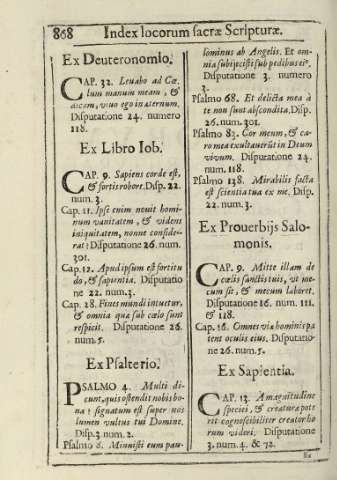 868 Index locorum sacræ Scripturæ.
Ex Deuteronomio.
CAP. 32. Leuabo ad Cœ-
lum manum meam, &
dicam, viuo ego in æternum.
Disputatione 24. numero
118.
Ex Libro Iob.
CAP. 9. Sapiens corde est,
& fortis robore. Disp. 22.
num. 3.
Cap. 11. Ipse enim nouit homi-
num vanitatem, & videns
iniquitatem, nonne conside-
rat? Disputatione 26. num.
301.
Cap. 12. Apud ipsum est fortitu
do, & sapientia. Disputatio
ne 22. num. 3.
Cap. 28. Fines mundi intuetur,
& omnia quæ sub cœlo sunt
respicit. Disputatione 26.
num. 5.
Ex Psalterio.
PSALMO 4. Multi di-
cunt, quis ostendit nobis bo-
na? signatum est super nos
lumen vultus tui Domine.
Disp. 3. num. 2.
Psalmo 8. Minuisti eum pau-
lominus ab Angelis. Et om-
nia subijecisti sub pedibus ei⁹.
Disputatione 3. numero
3.
Psalmo 68. Et delicta mea à
te non sunt abscondita. Disp.
26. num. 301.
Psalmo 83. Cor meum, & ca-
ro mea exultauerūt in Deum
vivum. Disputatione 24.
num. 118.
Psalmo 138. Mirabilis facta
est scientia tua ex me. Disp.
22. num. 3.
Ex Proverbijs Salo-
monis.
CAP. 9. Mitte illam de
cœlis sanctis tuis, vt me-
cum sit, & mecum laboret.
Disputatione 16. num. 111.
& 118.
Cap. 16. Omnes viæ hominis pa
tent oculis eius. Disputatio-
ne 26. num. 5.
Ex Sapientia.
CAP. 13. A magnitudine
speciei, & creaturæ pote
rit cognoscibiliter creator ho
rum videri. Disputatione
3. num. 4. & 72.